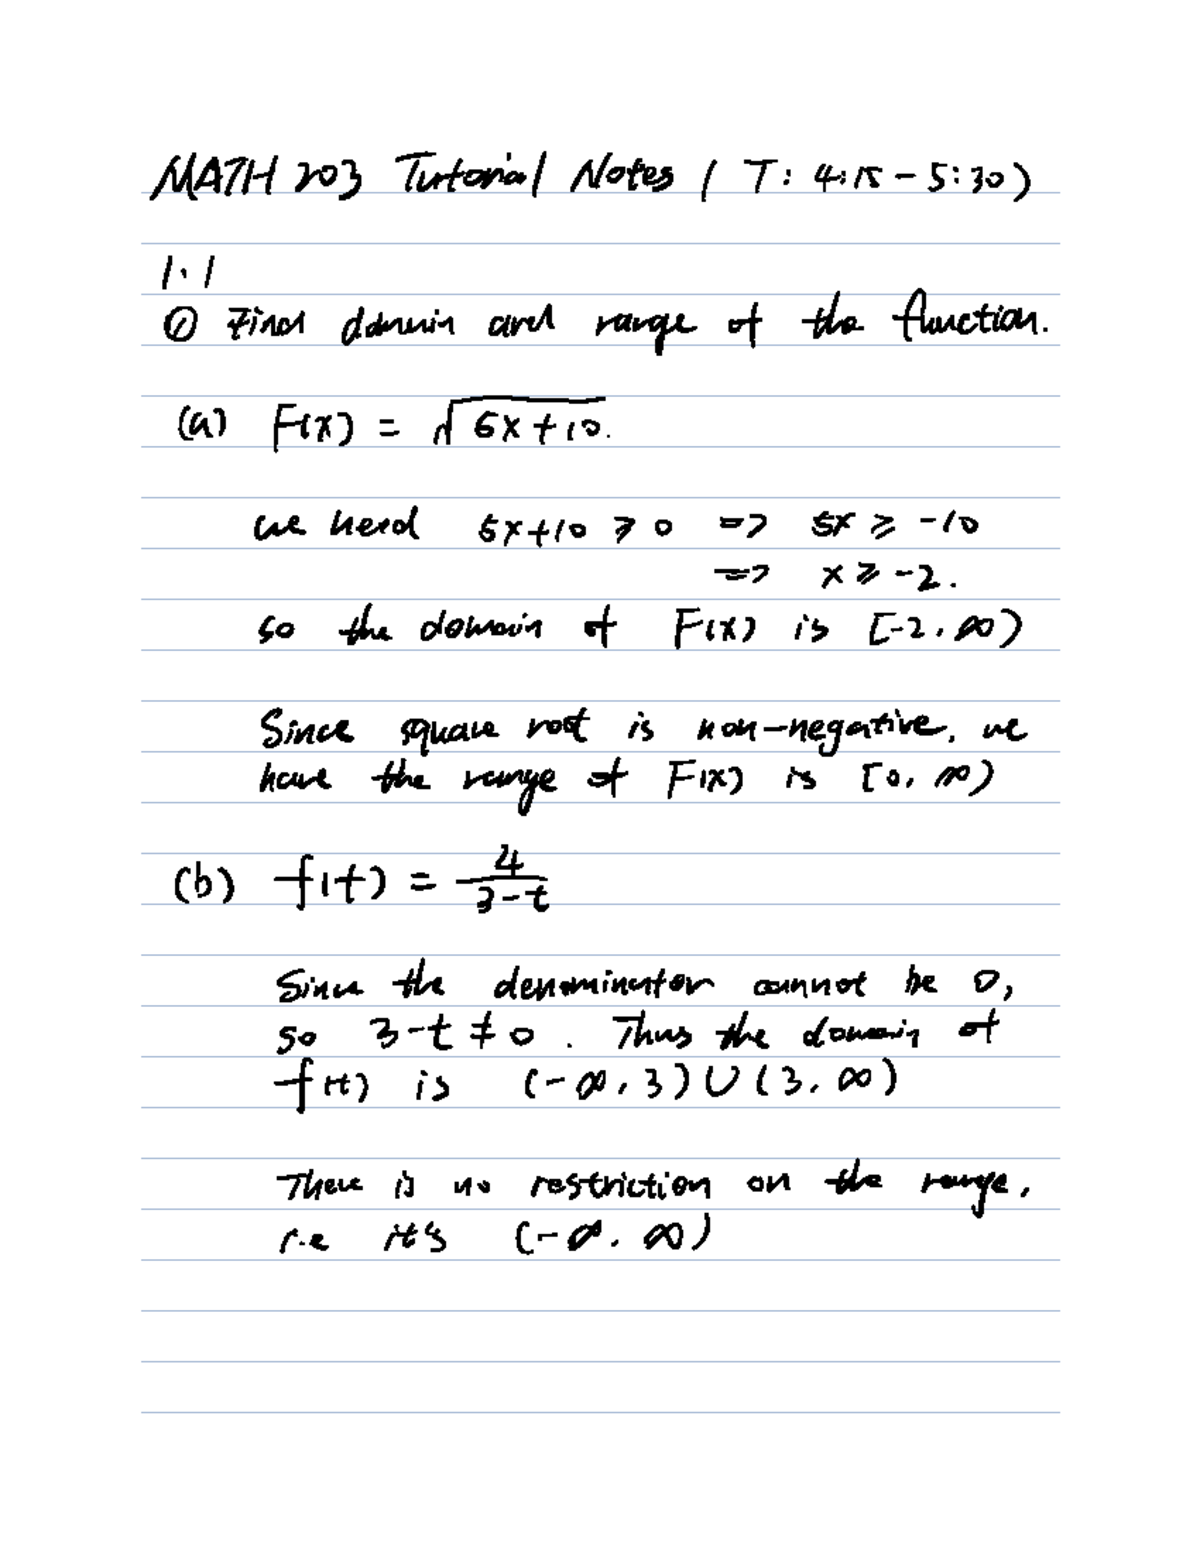 MATH 203 Tutorial Notes ( T: 4:15 - 5:30 )
1.1
① Find domain and range of the function.
(a) F(x) = √5x+10.
we need 5x+10 ⩾ 0 => 5x ⩾ -10
=> x ⩾ -2.
so the domain of F(x) is [-2, ∞)
Since square root is non-negative, we
have the range of F(x) is [0, ∞)
(b) f(t) = 4/3-t
Since the denominator cannot be 0,
so 3-t ≠ 0. Thus the domain of
f(t) is (-∞, 3) ∪ (3, ∞)
There is no restriction on the range,
i.e it's (-∞, ∞)